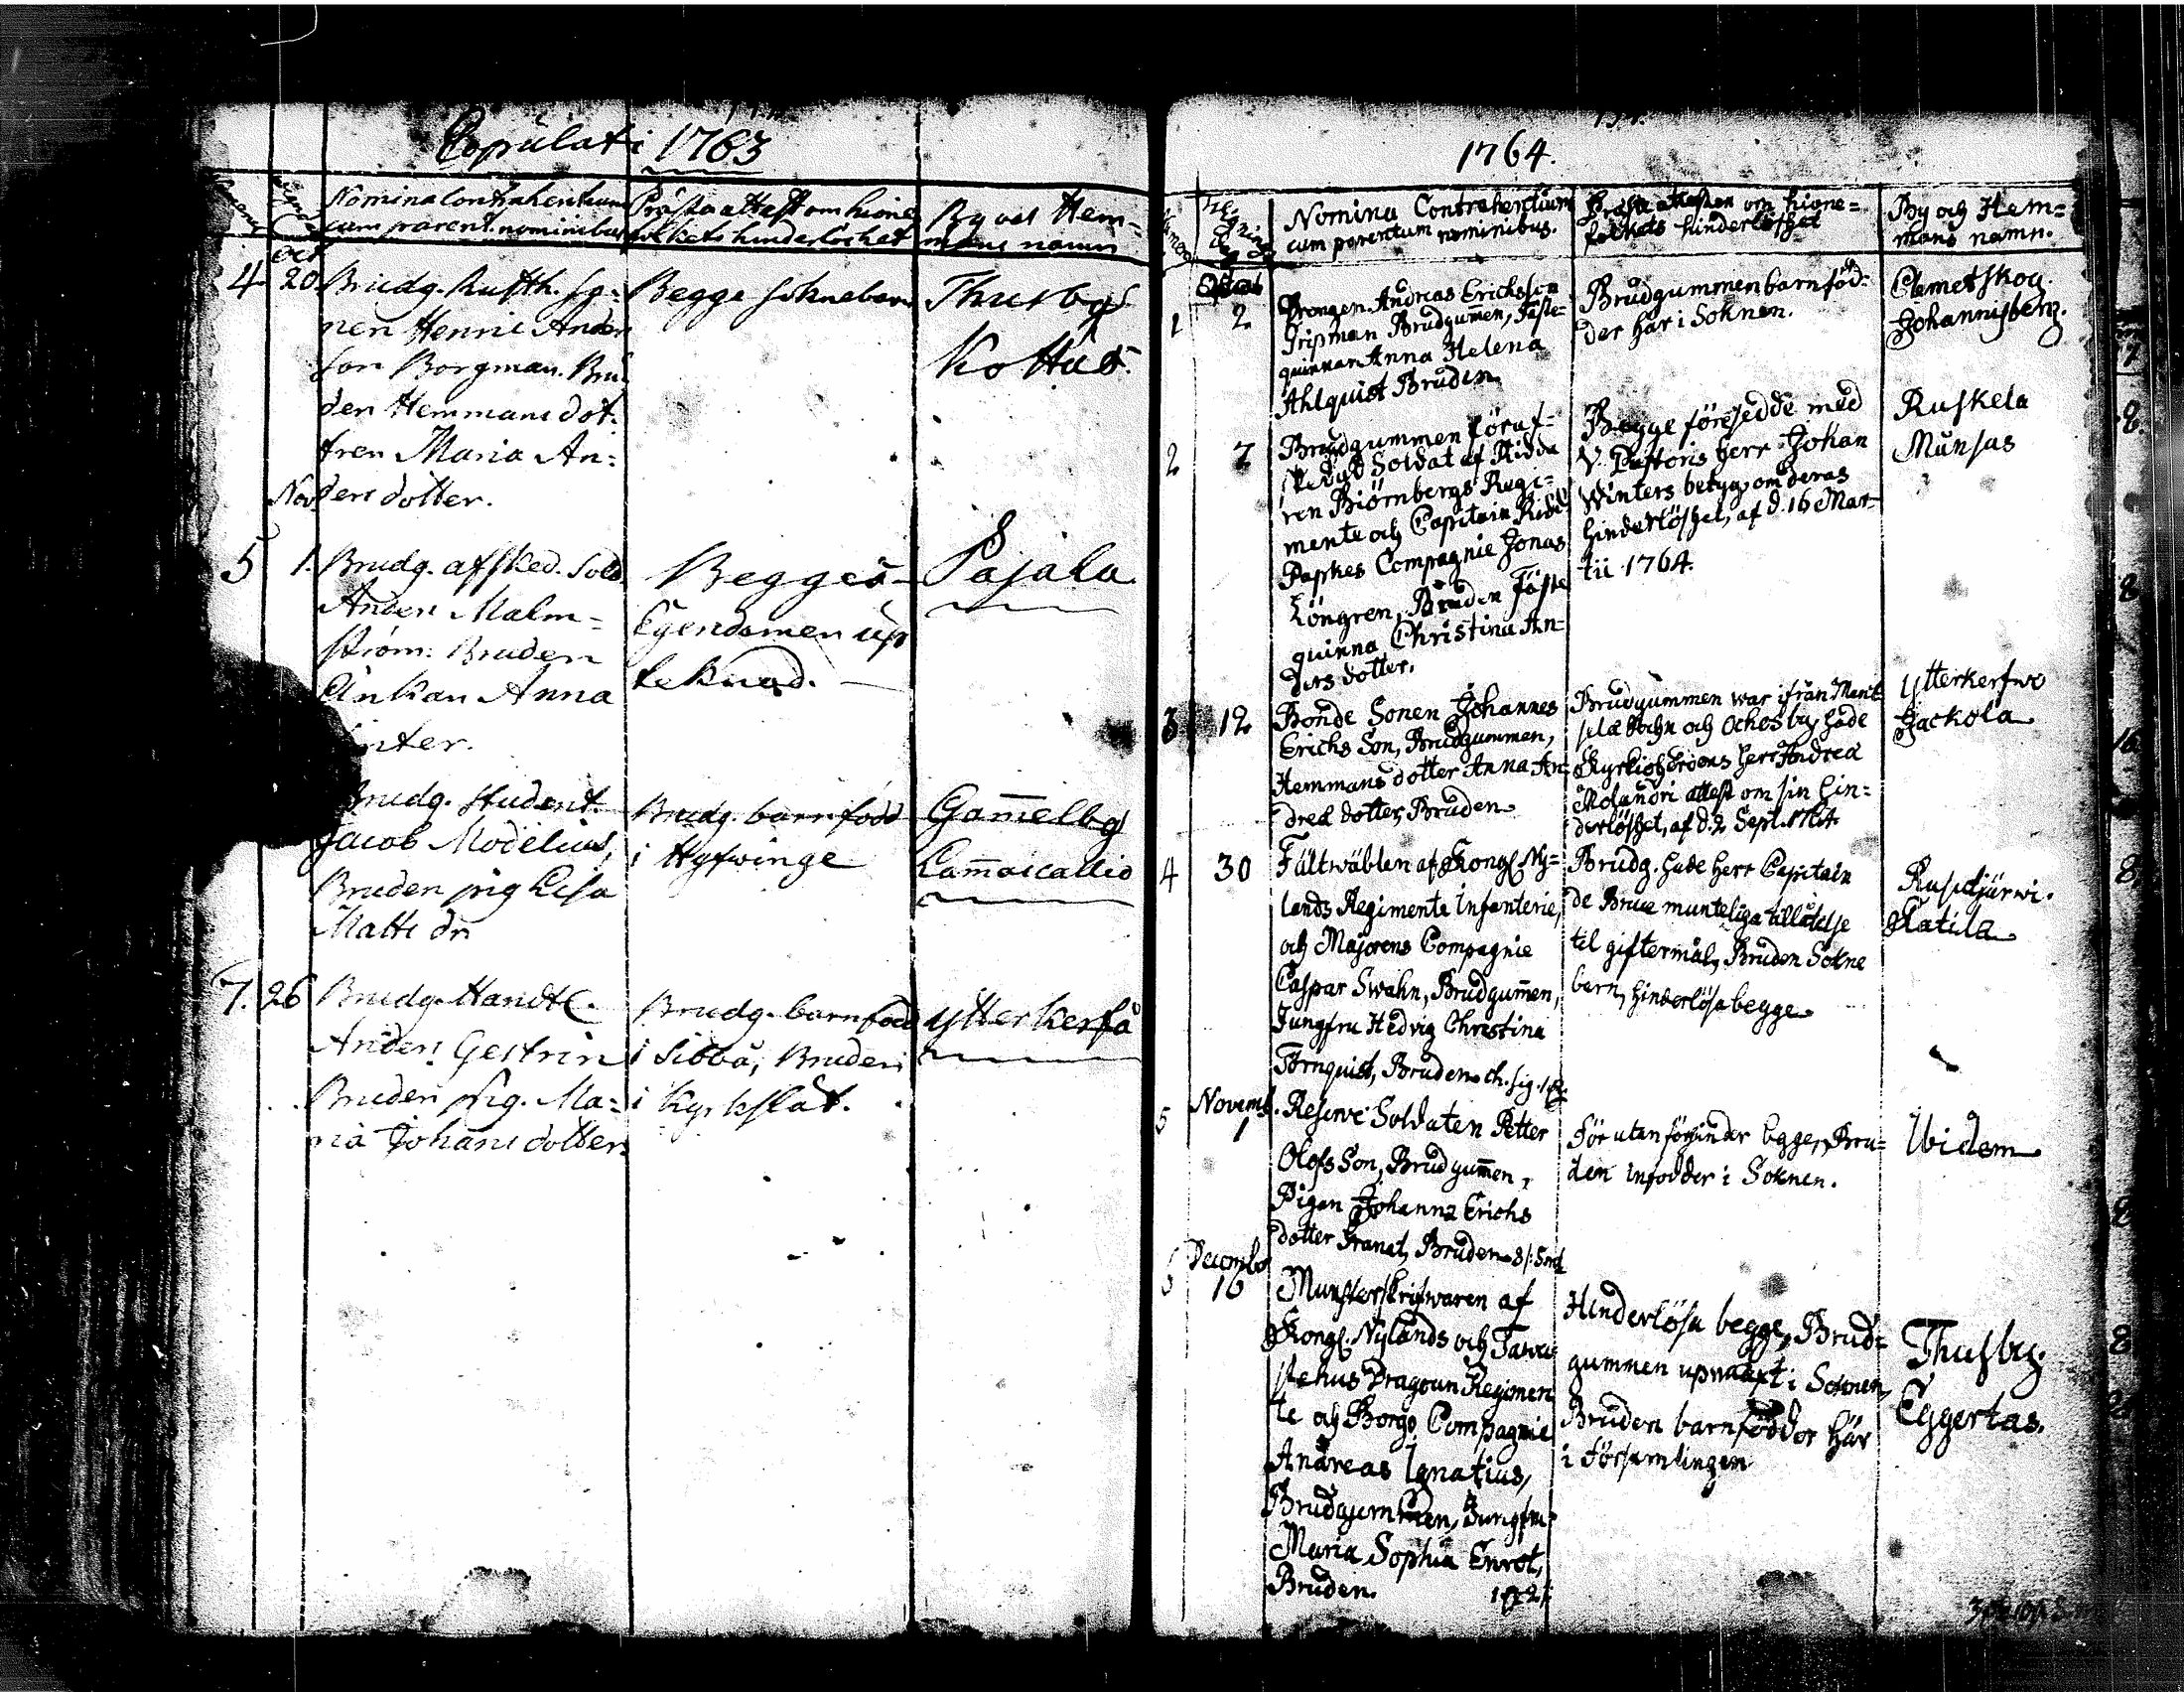 Copulati 1763
Nomina Contrahentium
cum parent. nominibus
Prästa attest om hione
folkets hinderlöshet
By och Hem=
mans namn
Oct
4. 20. Brudg. Rusth. So=
nen Henric Anders
son Borgman. Bru
den Hemmans dot=
tren Maria An=
ders dotter.
Begge soknebarn
Thusby
Kottus.
Nov.
5 1. Brudg. afsked. Sold.
Anders Malm=
ström: Bruden
Enkan Anna
Begges
Egendomen up
teknad.
Pajala
Brudg. Student.
Jacob Modelius,
Bruden pig Lisa
Matts dr
Brudg. barnfödd
i Hyfwinge
Gam̅elby
Lam̅aicallio
7. 26 Brudg. Handtl.
Anders Gestrin
Bruden pig. Ma=
ria Johans dotter.
Brudg. barnfödd
i Sibbå, Bruden
i Kyrkslät.
Ytterkerfå
1764.
Nomina Contrahentium
cum parentum nominibus.
Prästa attesten om hione=
folkets hinderlöshet
By och Hem=
mans namn.
1 2 Drengen Andreas Erichsson
Gripman Brudgumen, Fäste=
quinnan Anna Helena
Ahlquist Bruden.
Brudgummen barnföd=
der här i Soknen.
Clemetskog.
Johannisberg.
2 7 Brudgummen föraf=
skedad Soldat af Hidda
ren Biörnbergs Regi=
mente och Capitain Ride
Papkes Compagnie Jonas
Löngren, Bruden Fäste
quinna Christina An=
ders dotter.
Begge föresedde med
V. Pastoris Herr Johan
Winters betyg om deras
hinderlöshet, af d. 16 Mar=
tii 1764.
Ruskela
Munsas
3 12 Bonde Sonen Johannes
Erichs Son, Brudgummen,
Hemmans dotter Anna An=
dreæ dotter, Bruden
Brudgummen war ifrån Ment
selæ Sochn och Ochosby, hade
Kyrkioherdens Herr Andreæ
Molandri attest om sin hin=
derlöshet, af d. 2 Sept. 1764
Ytterkerfwo
Jackola
4 30 Fältwäblen af Kongl. Ny=
lands Regimente Infanterie,
och Majorens Compagnie
Caspar Swahn, Brudgum̅en,
Jungfru Hedvig Christina
Törnquist, Bruden
Brudg. hade Herr Capitain
de Bruce munteliga tillåtelse
til giftermål, Bruden Sokne
barn, hinderlösa begge
Rusutjärwi.
Katila
Novemb.
5 1 Reserve Soldaten Petter
Olofs Son, Brudgum̅en,
Pigan Johanna Erichs
dotter Granat, Bruden
För utan förhinder begge, Bru=
den infödder i Soknen.
Widem
December
16 Munsterskrifwaren af
Kongl. Nylands och Tawa
stehus Dragoun Regimen
te och Borgo Compagnie
Andreas Ignatius,
Brudgummen, Jungfru
Maria Sophia Enrot,
Bruden.
Hinderlösa begge, Brud=
gummen upwäxt i Soknen,
Bruden barnfödder här
i Församlingen
Thusby
Eggertas.